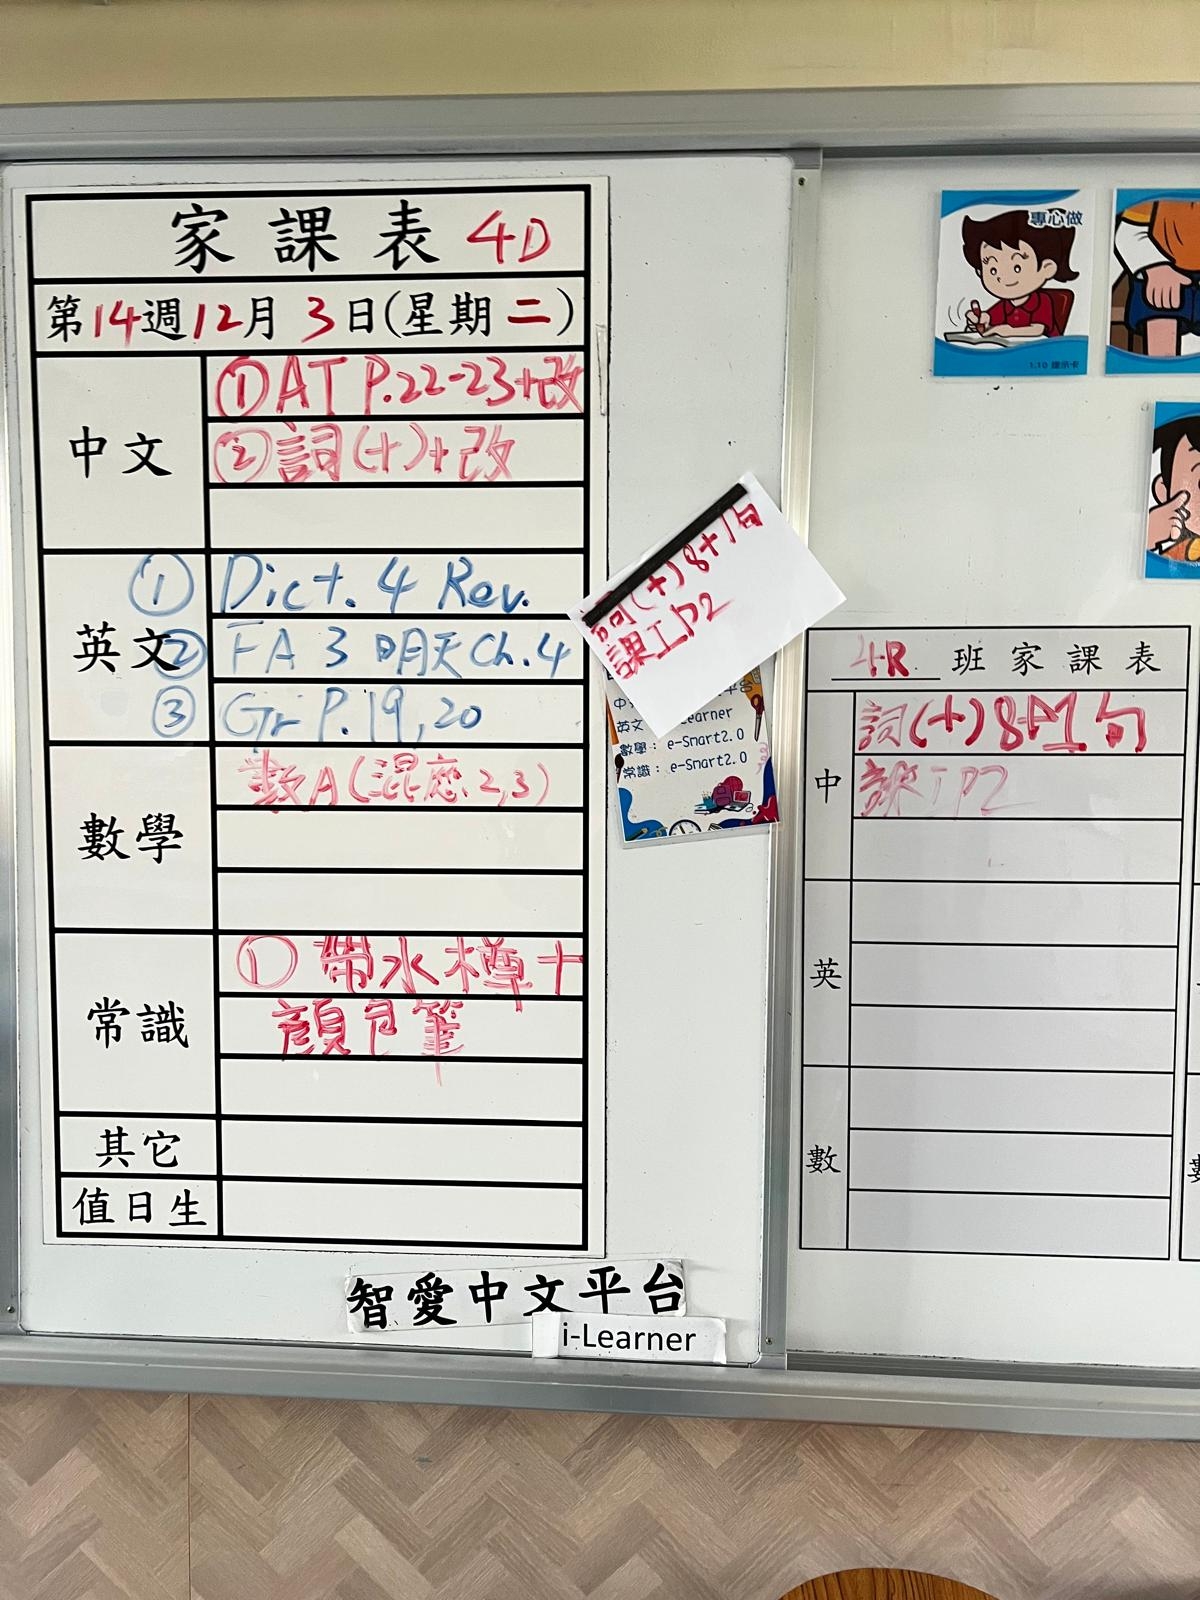 家課表 4D
第14週12月3日(星期二)
中文
①AT P.22-23+改
②詞(十)+改
英文
① Dict. 4 Rev.
② FA 3 明天Ch.4
③ Gr P.19,20
數學
數A(混應2,3)
常識
① 帶水樽+
顏色筆
其它
值日生
智愛中文平台
i-Learner
詞(十)8+1句
課工P2
英文
數學： e-Smart2.0
常識： e-Smart2.0
專心做
1.10 提示卡
4R 班家課表
中
詞(十)8+1句
課工P2
英
數